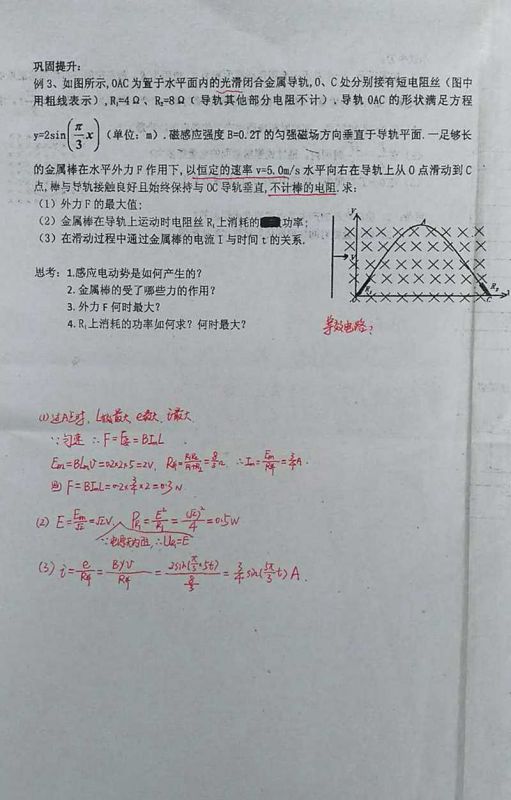 巩固提升:
例 3、如图所示,OAC 为置于水平面内的光滑闭合金属导轨,O、C 处分别接有短电阻丝(图中
用粗线表示),R₁=4Ω、R₂=8Ω(导轨其他部分电阻不计).导轨 OAC 的形状满足方程
y=2sin(π/3 x)(单位:m).磁感应强度 B=0.2T 的匀强磁场方向垂直于导轨平面.一足够长
的金属棒在水平外力 F 作用下,以恒定的速率 v=5.0m/s 水平向右在导轨上从 O 点滑动到 C
点,棒与导轨接触良好且始终保持与 OC 导轨垂直,不计棒的电阻.求:
(1)外力 F 的最大值;
(2)金属棒在导轨上运动时电阻丝 R₁上消耗的功率;
(3)在滑动过程中通过金属棒的电流 I 与时间 t 的关系.
y
A
v
R₁
R₂
C
x
思考:1.感应电动势是如何产生的?
2.金属棒的受了哪些力的作用?
3.外力 F 何时最大?
4.R₁上消耗的功率如何求?何时最大?
等效电路?
(1)过A点时, L效最大, e最大, i最大
∵匀速 ∴F=F安=BImL
Em=BLmV=0.2×2×5=2V, R并=R₁R₂/(R₁+R₂)=8/3Ω, ∴Im=Em/R并=3/4A.
F=BImL=0.2×3/4×2=0.3N
(2) E=Em/√2=√2V, PR₁=E²/R₁=(√2)²/4=0.5W
∵电源无内阻,∴UR₁=E
(3) i=e/R并=Byv/R并=2sin(π/3×5t)/(8/3)=3/4 sin(5π/3 t) A.